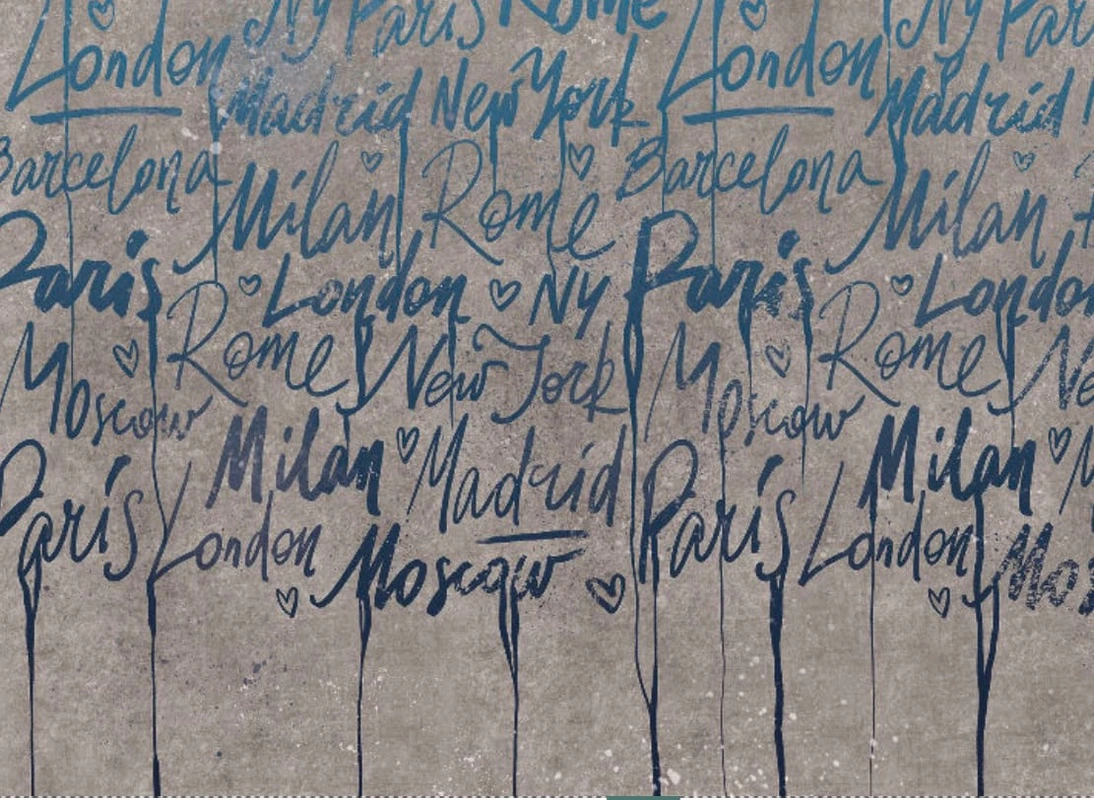 Ny Paris Rome Ny Par
London London
Madrid New York Madrid
Barcelona Barcelona
Milan Rome Milan
Paris London Ny Paris London
Moscow Rome New York Moscow Rome Ne
Milan Madrid Milan M
Paris London Paris London
Moscow Mos